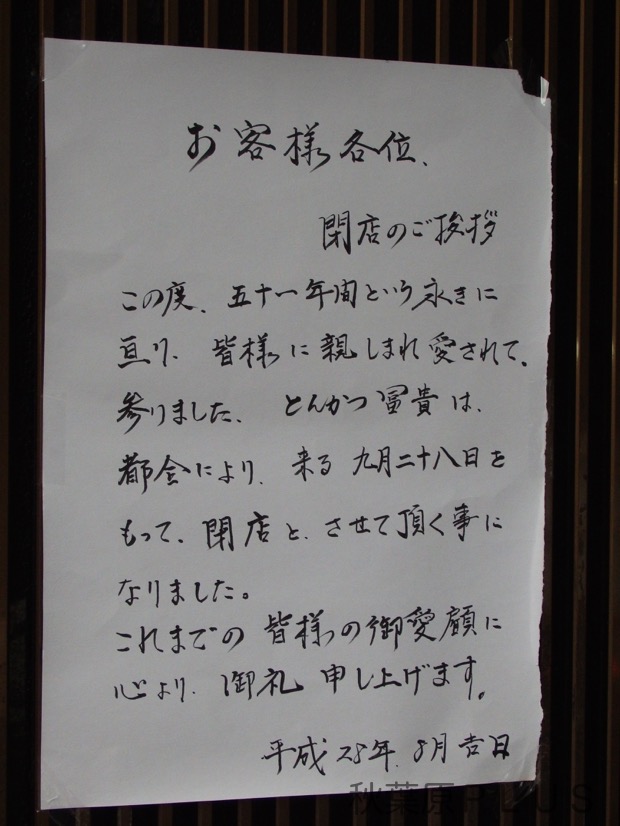 お客様各位、
閉店のご挨拶
この度、五十一年間という永きに
亘り、皆様に親しまれ愛されて、
参りました、とんかつ冨貴は、
都合により、来る九月二十八日を
もって、閉店と、させて頂く事に
なりました。
これまでの皆様の御愛顧に
心より、御礼申し上げます。
平成28年、8月吉日
秋葉原